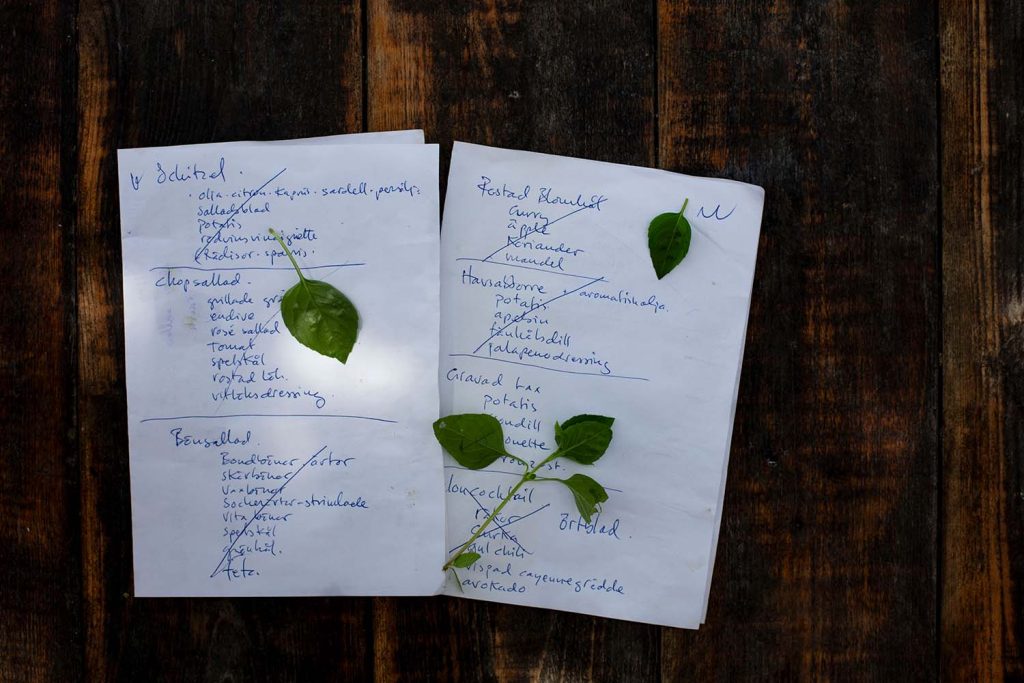 Schitzel.
olja-citron-kapris-sardell-persilj
Salladsblad
potatis
rödvinsvinaigrette
rädisor-sparris.
Chopsallad.
grillade
endive
rosé sallad
Tomat
spetskål
rostad lök.
vitlöksdressing
Bönsallad.
Bondbönor/ärtor
skärbönor
vaxbönor
Sockerärtor-strimlade
Vita bönor
Spetskål
grönkål.
Feta.
Rostad Blomkål
Curry
äpple
Koriander
mandel
Havsabborre + aromatiskolja.
potatis
apelsin
fänkålsdill
jalapenodressing
Gravad Lax
potatis
cocktail
räkor Örtblad.
Gurka
chili
vispad cayennegrädde
avokado